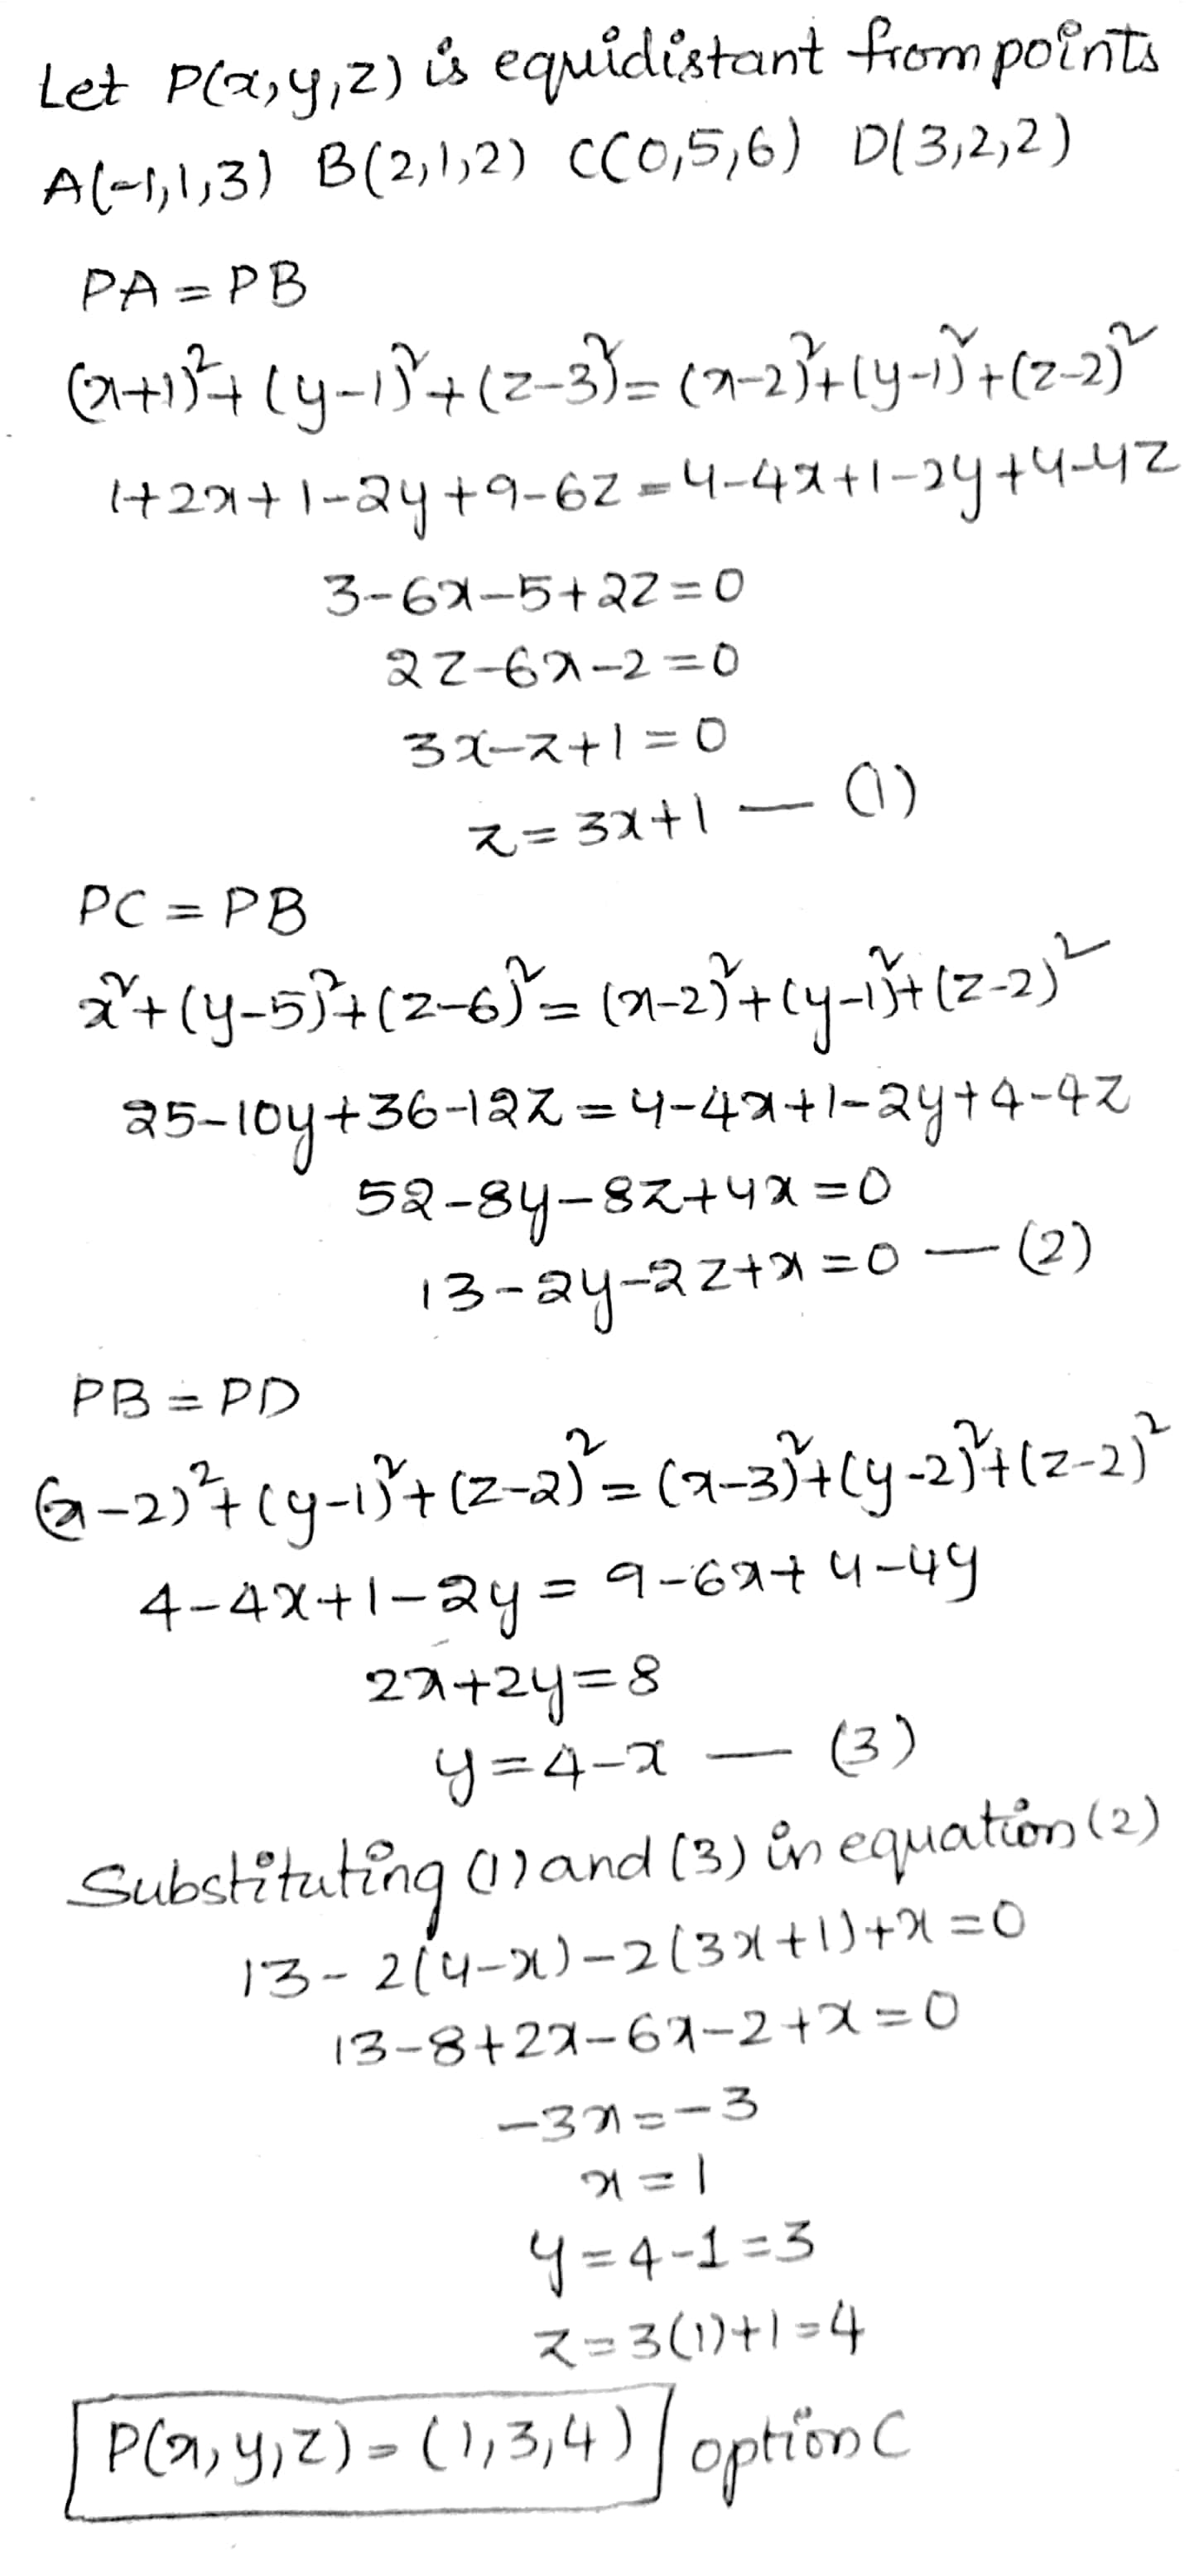 Let P(x,y,z) is equidistant from points
A(-1,1,3) B(2,1,2) C(0,5,6) D(3,2,2)
PA = PB
(x+1)²+(y-1)²+(z-3)²=(x-2)²+(y-1)²+(z-2)²
1+2x+1-2y+9-6z=4-4x+1-2y+4-4z
3-6x-5+2z=0
2z-6x-2=0
3x-z+1=0
z=3x+1 — (1)
PC = PB
x²+(y-5)²+(z-6)²=(x-2)²+(y-1)²+(z-2)²
25-10y+36-12z=4-4x+1-2y+4-4z
52-8y-8z+4x=0
13-2y-2z+x=0 — (2)
PB = PD
(x-2)²+(y-1)²+(z-2)²=(x-3)²+(y-2)²+(z-2)²
4-4x+1-2y=9-6x+4-4y
2x+2y=8
y=4-x — (3)
Substituting (1) and (3) in equation (2)
13-2(4-x)-2(3x+1)+x=0
13-8+2x-6x-2+x=0
-3x=-3
x=1
y=4-1=3
z=3(1)+1=4
P(x,y,z)=(1,3,4) option C